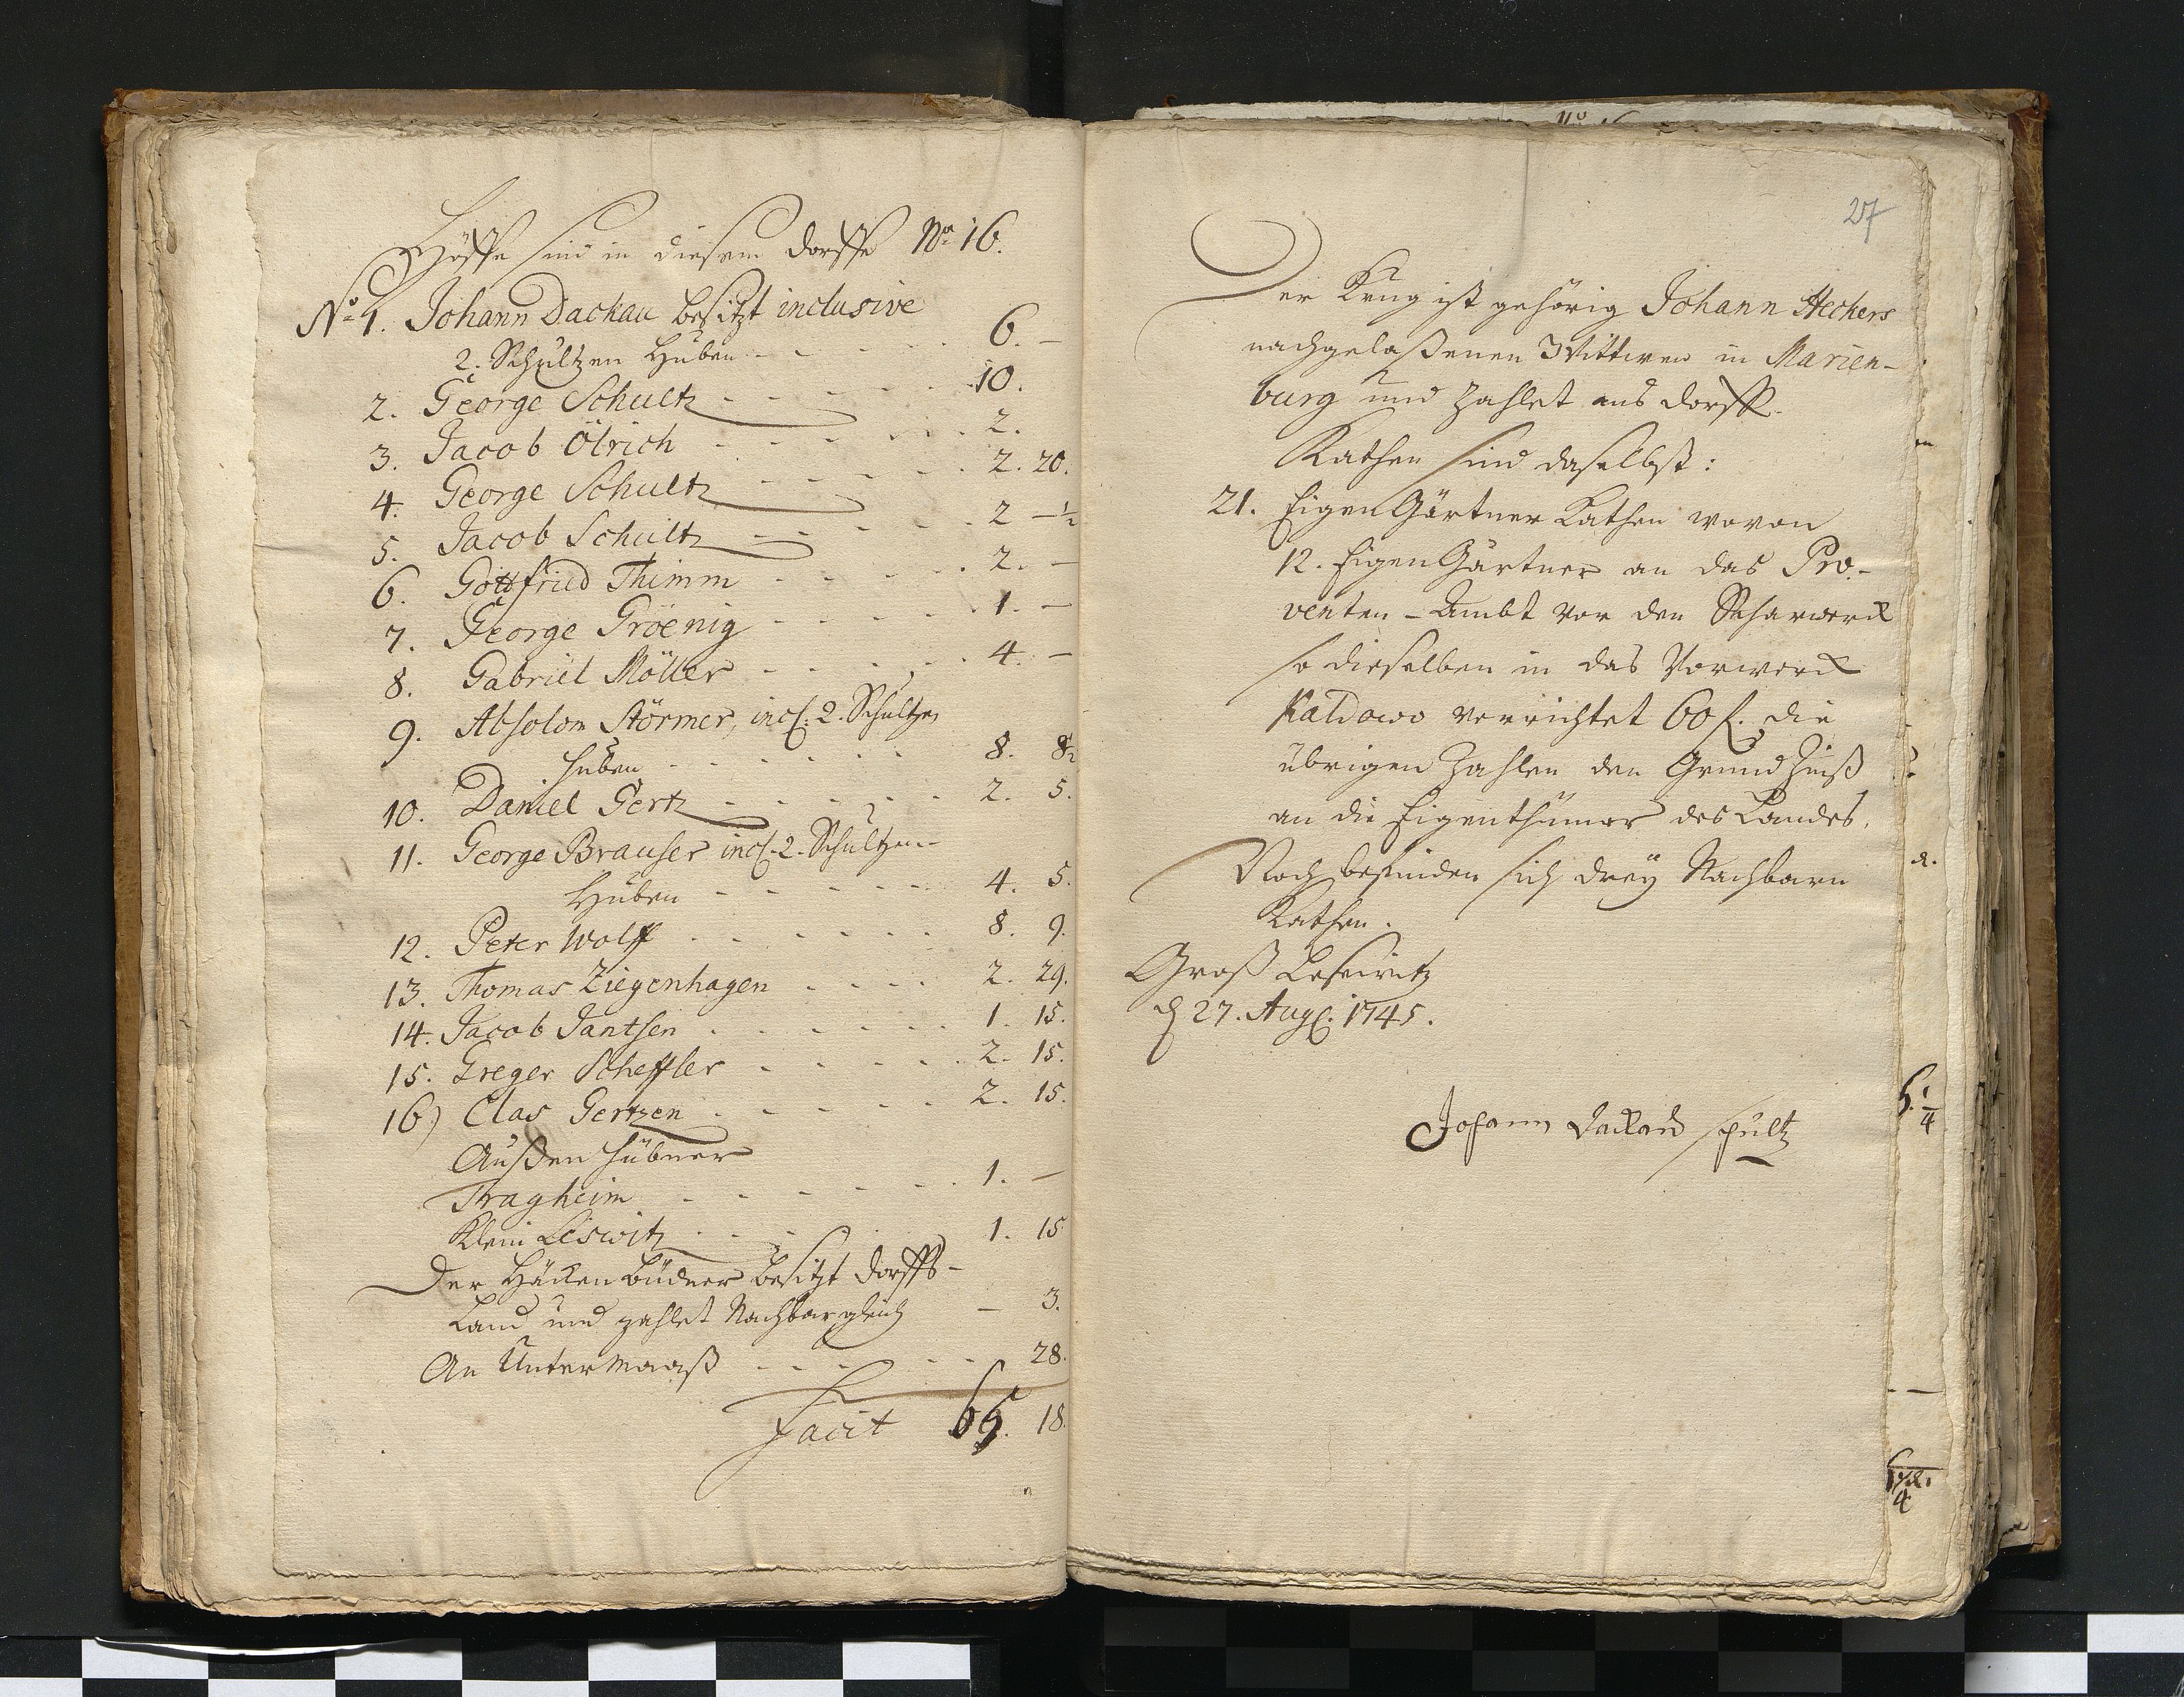 Höffe sind in diesem Dorffe No 16.
No 1. Johann Dackau besitzt inclusive
2. Schultzen Huben - - - - 6. -
2. George Schultz - - - - 10.
3. Jacob Ölrich - - - - 2.
4. George Schultz - - - - 2. 20.
5. Jacob Schultz - - - - 2 - ½
6. Gottfried Thimm - - - - 2. -
7. George Gröenig - - - - 1. -
8. Gabriel Möller - - - - 4. -
9. Absolom Störmer, incl. 2. Schultzen
Huben - - - - 8. 8½
10. Daniel Gertz - - - - 2. 5.
11. George Brauser incl. 2. Schultzen-
Huben - - - - 4. 5.
12. Peter Wolff - - - - 8. 9.
13. Thomas Ziegenhagen - - - - 2. 29.
14. Jacob Jantsen - - - - 1. 15.
15. Greger Scheffler - - - - 2. 15.
16) Clas Gertzen - - - - 2. 15.
Außen Hübner
Tragheim - - - - 1. -
Klein Leswitz - - - - 1. 15
Der Häcken Büdner besitzt Dorffs-
Land und zahlet Nachbar gleich - 3.
An Untermaaß - - - - 28.
Facit 65. 18.
27
Der Krug ist gehörig Johann Heckers
nachgelaßenen Wittwen in Marien-
burg und zahlet ans Dorff.
Kathen sind daselbst:
21. Eigen Gärtner Kathen wovon
12. Eigen Gärtner an das Pro-
venten-Ambt vor den Scharwerck
so dieselben in das Vorwerck
Kaldowo verrichtet 60 f. die
übrigen zahlen den Grund Zinß
an die Eigenthümer des Landes.
Noch befinden sich drey Nachbarn
Kathen.
Groß Lesewitz
d 27. Aug. 1745.
Johann Dackau schultz